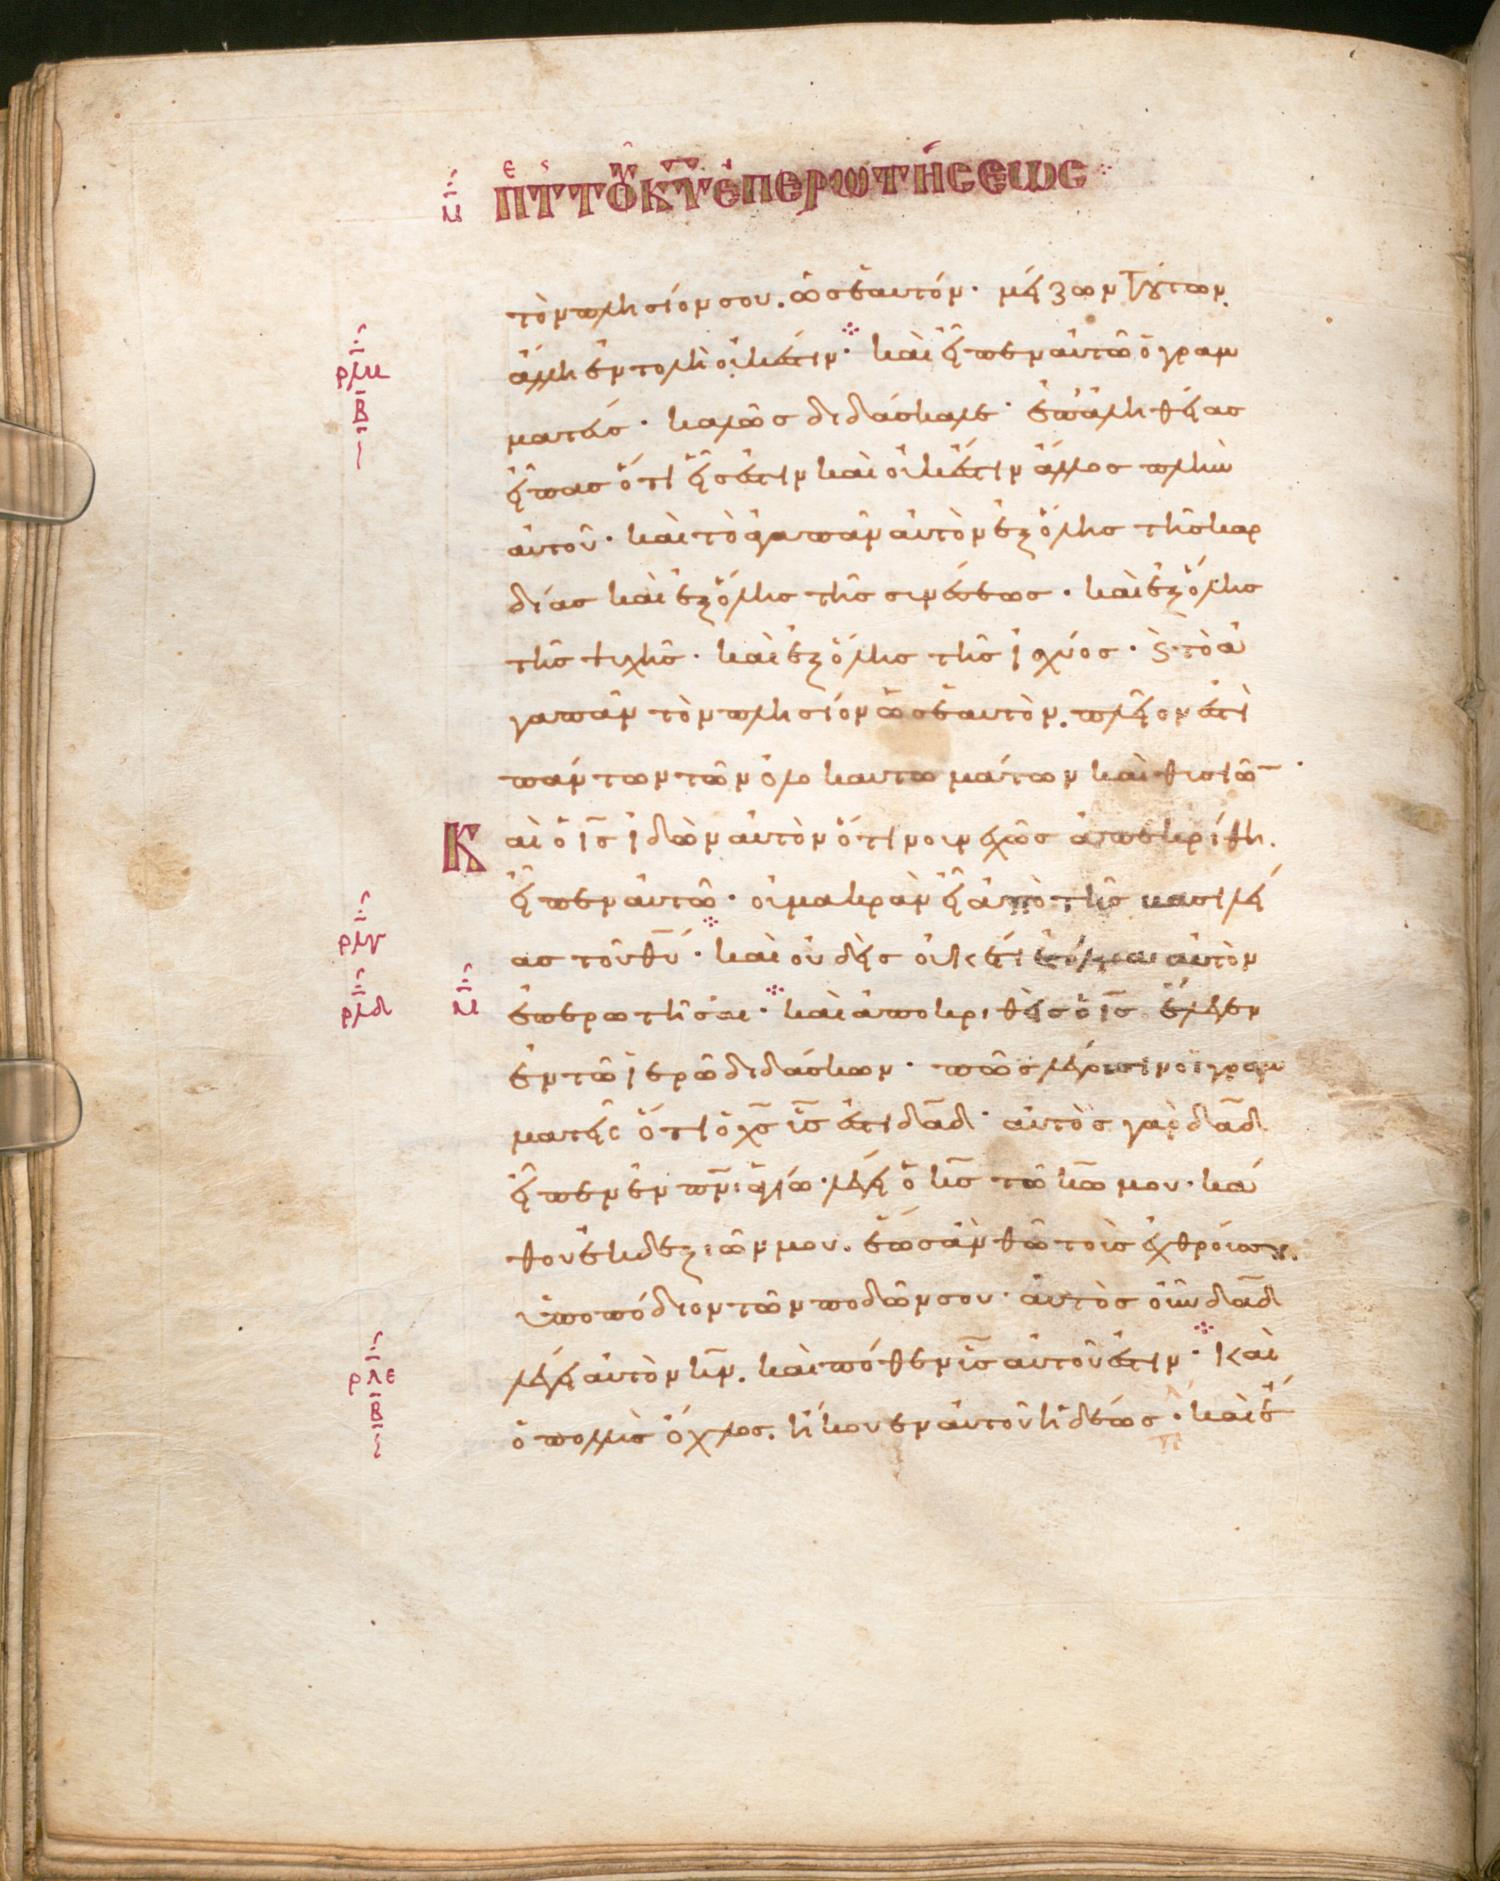 μ̅ Περὶ τῆς τοῦ κυ̅ ἐπερωτήσεως
τὸν πλησίον σου. ὡσεαυτόν· μείζων τούτων
ἄλλη ἐντολὴ οὐκ ἔστιν· καὶ εἶπεν αὐτῶ ὁ γραμ
ρλβ
β
ματεύς· καλῶς διδάσκαλε· ἐπ' ἀληθείας
εἶπας ὅτι εἷς ἐστιν καὶ οὐκ ἔστιν ἄλλος πλὴν
αὐτοῦ· καὶ τὸ ἀγαπᾶν αὐτὸν ἐξ ὅλης τῆς καρ
δίας καὶ ἐξ ὅλης τῆς συνέσεως· καὶ ἐξ ὅλης
τῆς ψυχῆς· καὶ ἐξ ὅλης τῆς ἰσχύος· ϗ τὸ ἀ
γαπᾶν τὸν πλησίον ὡς ἑαυτὸν. πλεῖον ἐστὶ
πάντων τῶν ὁλοκαυτωμάτων καὶ θυσιῶ̅·
Καὶ ὁ ι̅ς̅ ἰδὼν αὐτὸν ὅτι νουνεχῶς ἀπεκρίθη.
εἶπεν αὐτῶ· οὐ μακρὰν εἶ ἀπὸ τῆς βασιλεί
ρλγ
ας τοῦ θυ̅· καὶ οὐδεὶς οὐκέτι ἐτόλμα αὐτὸν
ρλδ
ἐπερωτῆσαι· καὶ ἀποκριθεὶς ὁ ι̅ς̅ ἔλεγεν
ἐν τῶ ἱερῶ διδάσκων· πῶς λέγουσιν οἱ γραμ
ματεῖς ὅτι ὁ χ̅ς̅ υ̅ς̅ ἐστι δα̅δ̅· αὐτὸς γὰρ δα̅δ̅
εἶπεν ἐν πν̅ι ἁγίω· λέγει ὁ κ̅ς̅ τῶ κ̅ω̅ μου· κά
θου ἐκ δεξιῶν μου. ἕως ἂν θῶ τοὺς ἐχθρούς σου.
ὑποπόδιον τῶν ποδῶν σου· αὐτὸς οὖν δα̅δ̅
ρλε
β
λέγει αὐτὸν κ̅ν̅. καὶ πόθεν υ̅ς̅ αὐτοῦ ἐστιν· καὶ
ὁ πολλὺς ὄχλος. ἤκουεν αὐτοῦ ἡδέως· καὶ ἔ